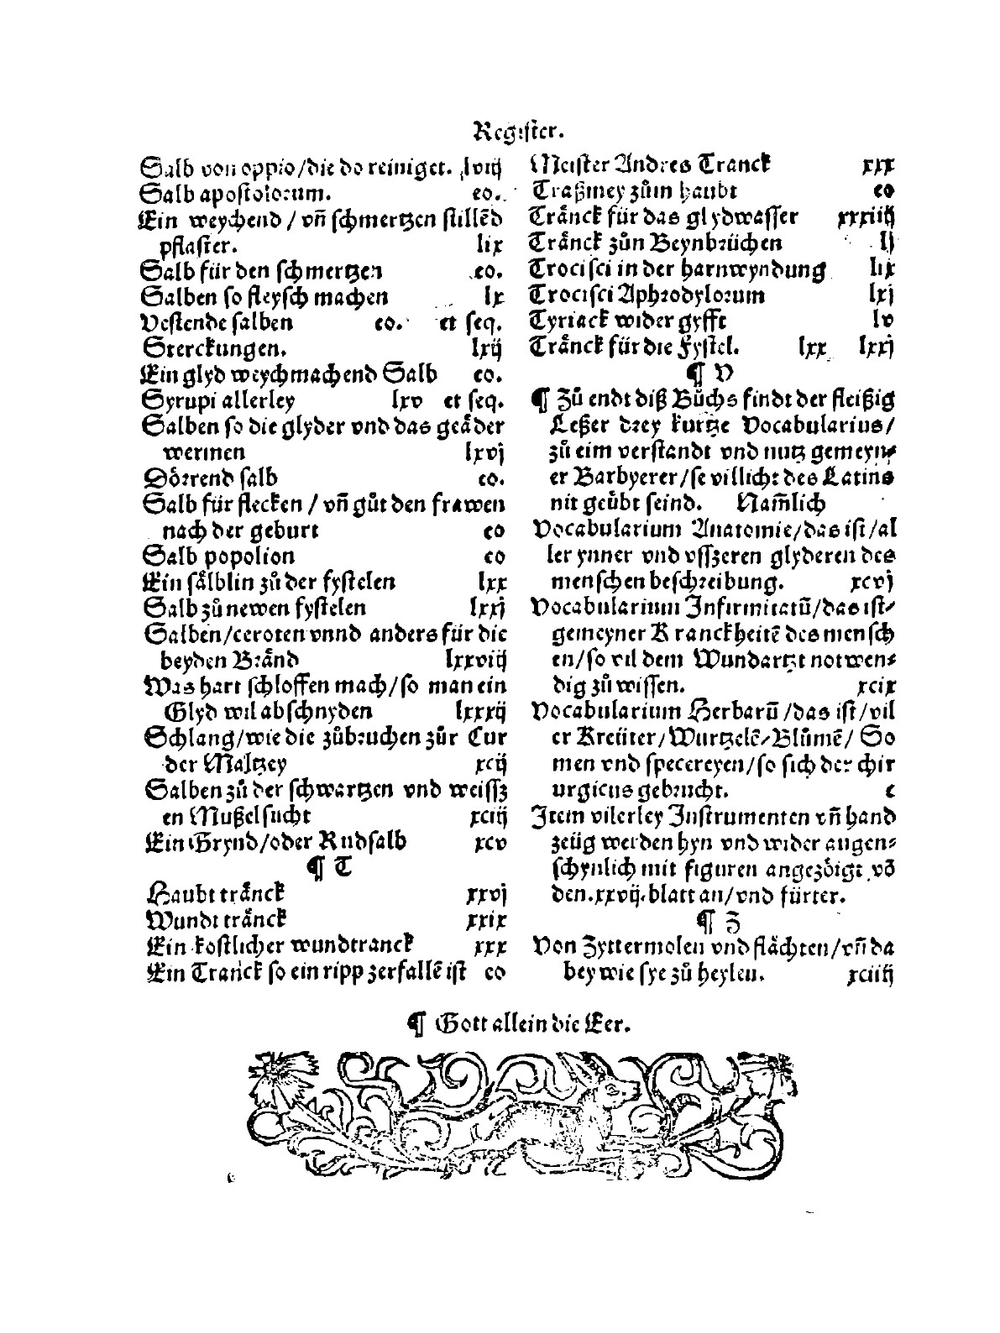 Register.
Salb von oppio/die do reiniget. lviij
Salb apostolorum. eo.
Ein weychend / vn̄ schmertzen stillēd
pflaster. lix
Salb für den schmertzen eo.
Salben so fleysch machen lx
Vestende salben eo. et seq.
Sterckungen. lxij
Ein glyd weychmachend Salb eo.
Syrupi allerley lxv et seq.
Salben so die glyder vnd das geäder
wermen lxvj
Dörrend salb eo.
Salb für flecken / vn̄ gůt den frawen
nach der geburt eo
Salb popolion eo
Ein sälblin zů der fystelen lxx
Salb zů newen fystelen lxxj
Salben/ceroten vnnd anders für die
beyden Bränd lxxviij
Was hart schloffen mach/so man ein
Glyd wil abschnyden lxxxij
Schlang/wie die zůbruchen zůr Cur
der Maltzey xcij
Salben zů der schwartzen vnd weissz
en Mußelsucht xciij
Ein Grynd/oder Rudsalb xcv
¶ T
Haubt tränck xxvj
Wundt tränck xxix
Ein kostlicher wundtranck xxx
Ein Tranck so ein ripp zerfallē ist eo
Meister Andres Tranck xxx
Traßmey zům haubt eo
Tränck für das glydwasser xxxiiij
Tränck zůn Beynbrüchen lj
Trocisci in der harnwyndung lix
Trocisci Aphrodylorum lxj
Tyriack wider gyfft lv
Tränck für die Fystel. lxx lxxj
¶ V
¶ Zů endt diß Bůchs findt der fleißig
Leßer drey kurtze Vocabularius/
zů eim verstandt vnd nutz gemeyn⸗
er Barbyerer/se villicht des Latins
nit geübt seind. Nam̄lich
Vocabularium Anatomie/das ist/al
ler ynner vnd vsszeren glyderen des
menschen beschreibung. xcvj
Vocabularium Infirmitatū/das ist⸗
gemeyner Kranckheitē des mensch
en/so vil dem Wundartzt notwen⸗
dig zů wissen. xcix
Vocabularium Herbarū/das ist/vil
er Kreüter/Wurtzelē/Blůmē/ So
men vnd specereyen/so sich der chir
urgicus gebrucht. c
Item vilerley Instrumenten vn̄ hand
zeüg werden hyn vnd wider augen⸗
schynlich mit figuren angezöigt vō
den.xxvij.blatt an/vnd fürter.
¶ Z
Von Zyttermolen vnd flächten/vn̄ da
bey wie sye zů heylen. xciiij
¶ Gott allein die Eer.